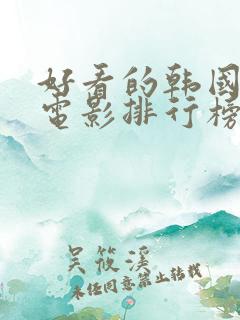 好看的韩國
電影排行榜
吴筱溪
未经同意禁止转载